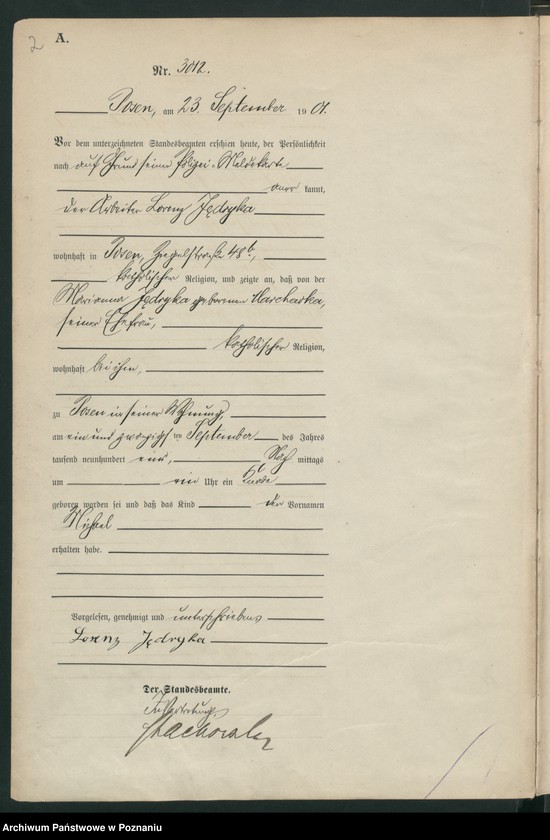 2
A.
Nr. 3012.
Posen, am 23. September 19 01.
Vor dem unterzeichneten Standesbeamten erschien heute, der Persönlichkeit
nach auf Grund seiner Polizei-Meldekarte
aner kannt,
der Arbeiter Lorenz Jędryka
wohnhaft in Posen, 48b,
katholischer Religion, und zeigte an, daß von der
Marianna Jędryka geborenen
seiner Ehefrau,
katholischer Religion,
wohnhaft bei ihm,
zu Posen in seiner Wohnung,
am ein und zwanzigsten September des Jahres
tausend neunhundert eins, Nach mittags
um ein Uhr ein Knabe
geboren worden sei und daß das Kind den Vornamen
Michael
erhalten habe.
Vorgelesen, genehmigt und unterschrieben
Lorenz Jędryka
Der Standesbeamte.
In Vertretung.
Archiwum Państwowe w Poznaniu